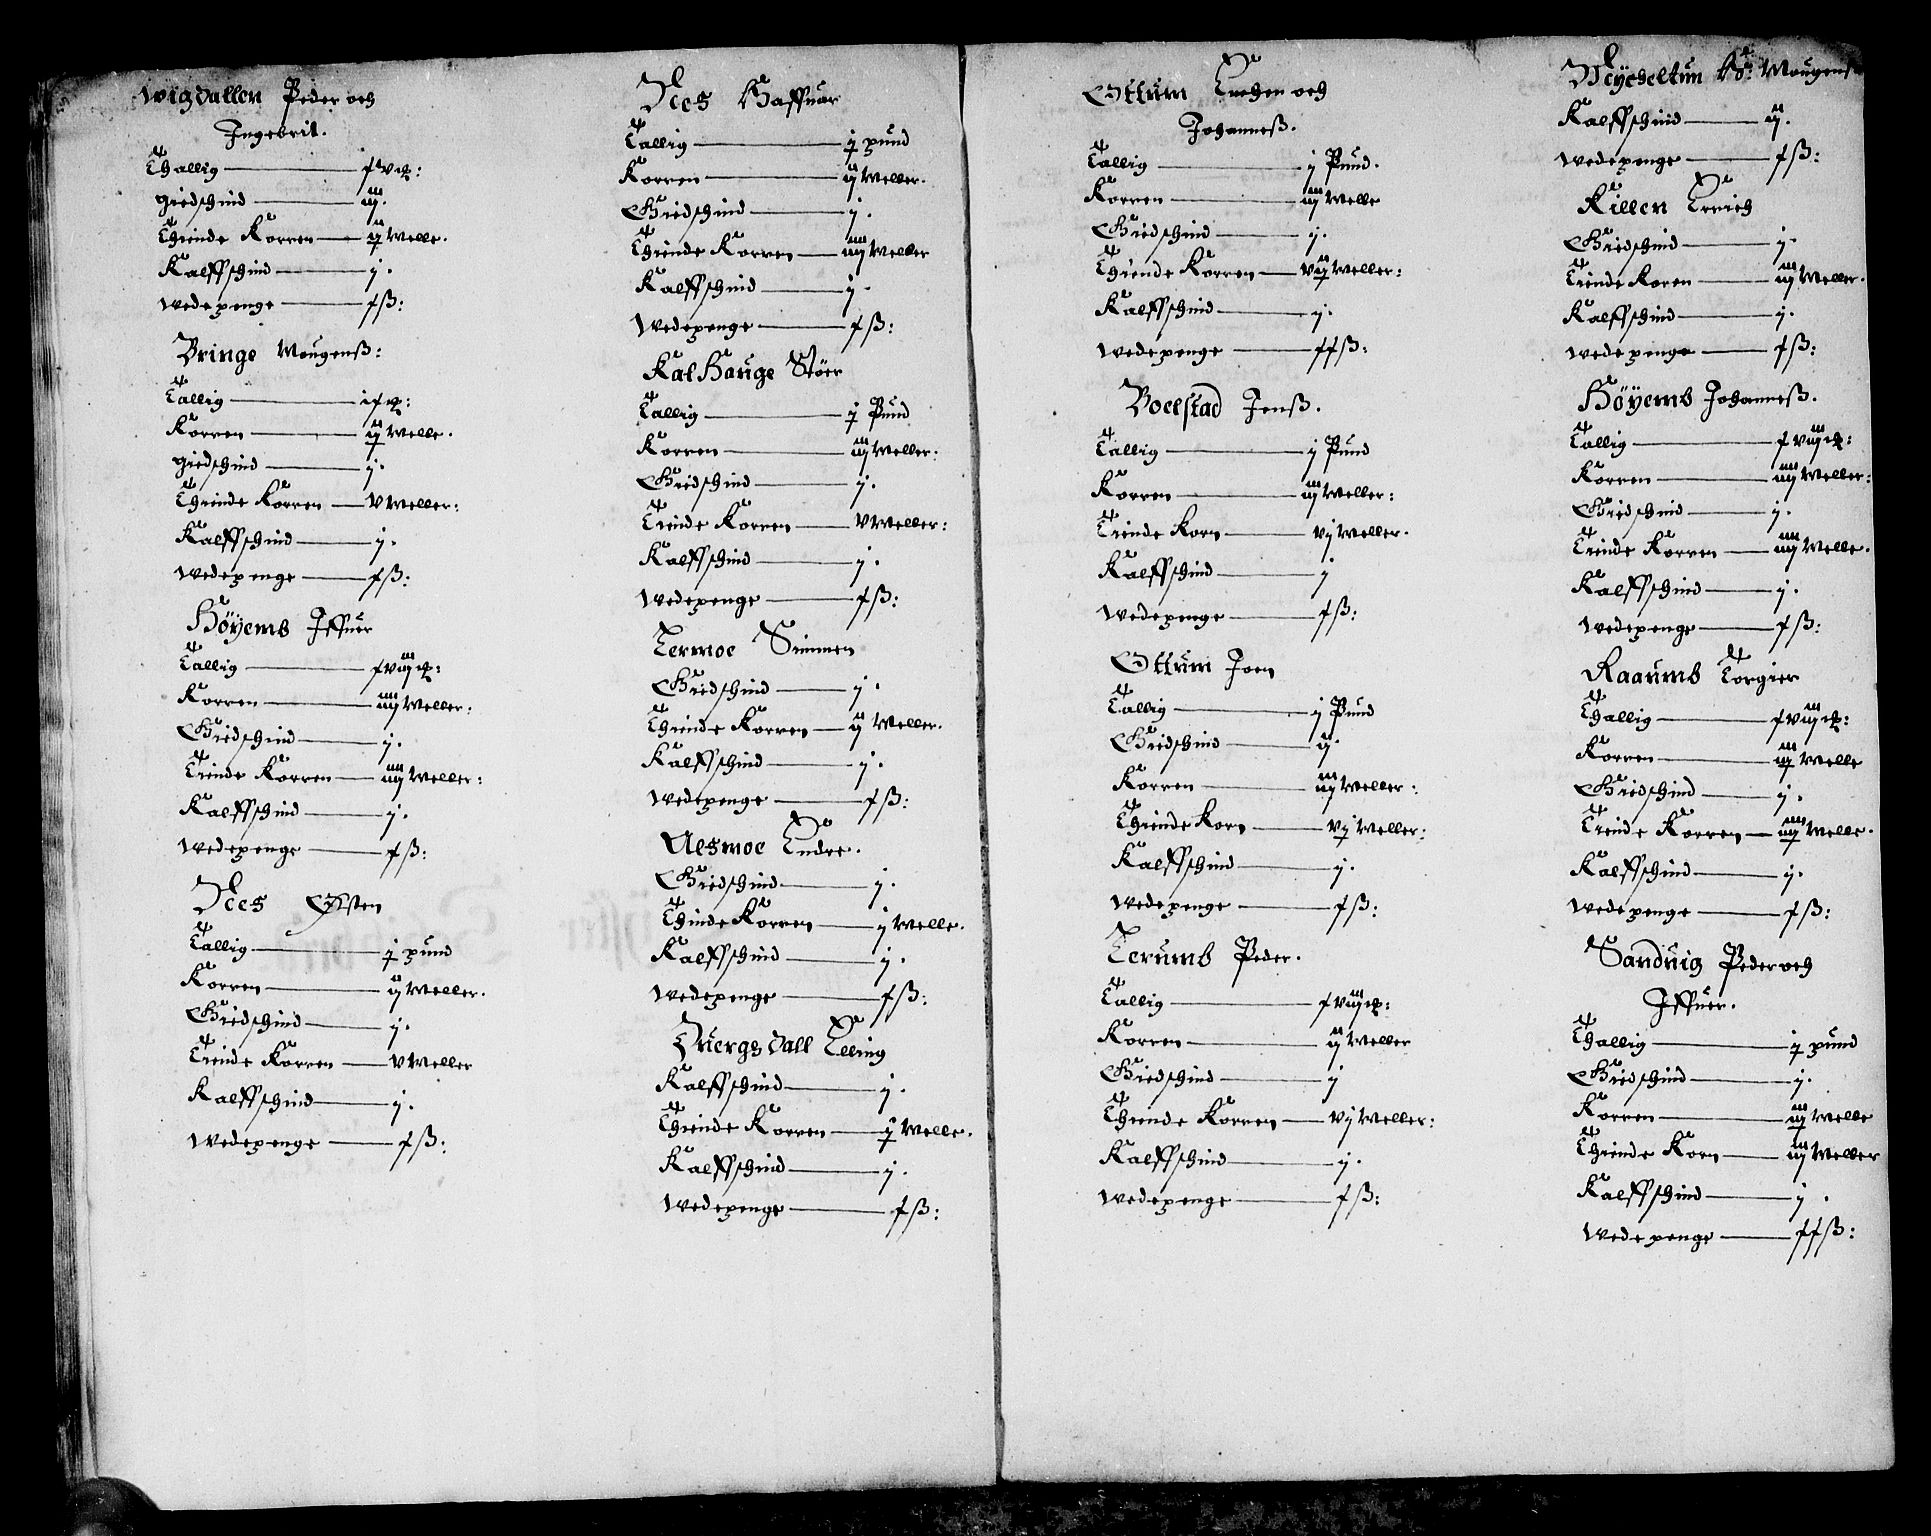 Wigdallen Peder och
Ingebrit.
Thallig — f v ꝶ:
giedschind — iij.
Thiende Korren — ij Welle.
Kalffschind — j.
Wedepenge — f ß:
Bringe Mougenß:
Tallig — i f ꝶ:
Korren — ij Welle.
giedschind — j.
Thiende Korren — v Weller:
Kalffschind — j.
Wedepenge — f ß:
Höyemb Iffuer
Tallig — f viij ꝶ:
Korren — iiij Weller:
Giedschind — j.
Tiende Korren — iiij Weller:
Kalffschind — j.
Wedepenge — f ß:
Nees Østen
Tallig — j pund
Korren — ij Weller.
Giedschind — j.
Tiende Korren — v Weller
Kalffschind — j.
Wedepenge — f ß:
Nees Haffuar
Tallig — j pund
Korren — ij Weller.
Giedschind — j.
Thiende Korren — iiij Weller
Kalffschind — j.
Wedepenge — f ß:
Kalhauge Støer
Tallig — j Pund
Korren — iij Weller:
Giedschind — j.
Tiende Korren — v Weller:
Kalffschind — j.
Wedepenge — f ß:
Lermoe Simmen
Giedschind — j.
Thiende Korren — ij Weller.
Kalffschind — j.
Wedepenge — f ß:
Aesmoe Endre.
Giedschind — j.
Thinde Korren — j Welle.
Kalffschind — j.
Wedepenge — f ß:
Duergsdall Elling
Kalffschind — j.
Thiende Korren — j Welle.
Kalffschind — j.
Wedepenge — f ß:
Ottum Enchen och
Johanneß.
Tallig — j Pund.
Korren — iij Welle
Giedschind — j.
Thiende Korren — vij Weller:
Kalffschind — j.
Wedepenge — ff ß:
Boelstad Jenß.
Tallig — j Pund
Korren — iij Weller:
Tiende Korn — vj Weller.
Kalffschind — j
Wedepenge — f ß:
Ottum Joen
Tallig — j Pund
Giedschind — ij.
Korren — iij Weller:
Thiende Korn — vj Weller:
Kalffschind — j.
Wedepenge — f ß:
Lerumb Peder.
Tallig — f viij ꝶ:
Korren — iij Weller
Giedschind — j
Thiende Korren — vj Weller:
Kalffschind — j.
Wedepenge — f ß:
Meycheltun Mougenß
Kalffschind — ij.
Wedepenge — f ß:
Killen Errich
Giedschind — j.
Tiende Koren — iij Weller.
Kalffschind — j.
Wedepenge — f ß:
Höyemb Johanneß.
Tallig — f viij ꝶ:
Korren — iiij Weller:
Giedschind — j.
Tiende Korren — iiij Welle.
Kalffschind — j.
Wedepenge — f ß:
Raaumb Torgier
Thallig — f viij ꝶ:
Korren — iij Welle
Giedschind — j.
Tiende Korren — iiij Welle.
Kalffschind — j.
Wedepenge — f ß:
Sanduig Peder och
Iffuer.
Thallig — j pund
Giedschind — j.
Korren — iij Welle
Thiende Korn — iij Weller
Kalffschind — j.
Wedepenge — ff ß: